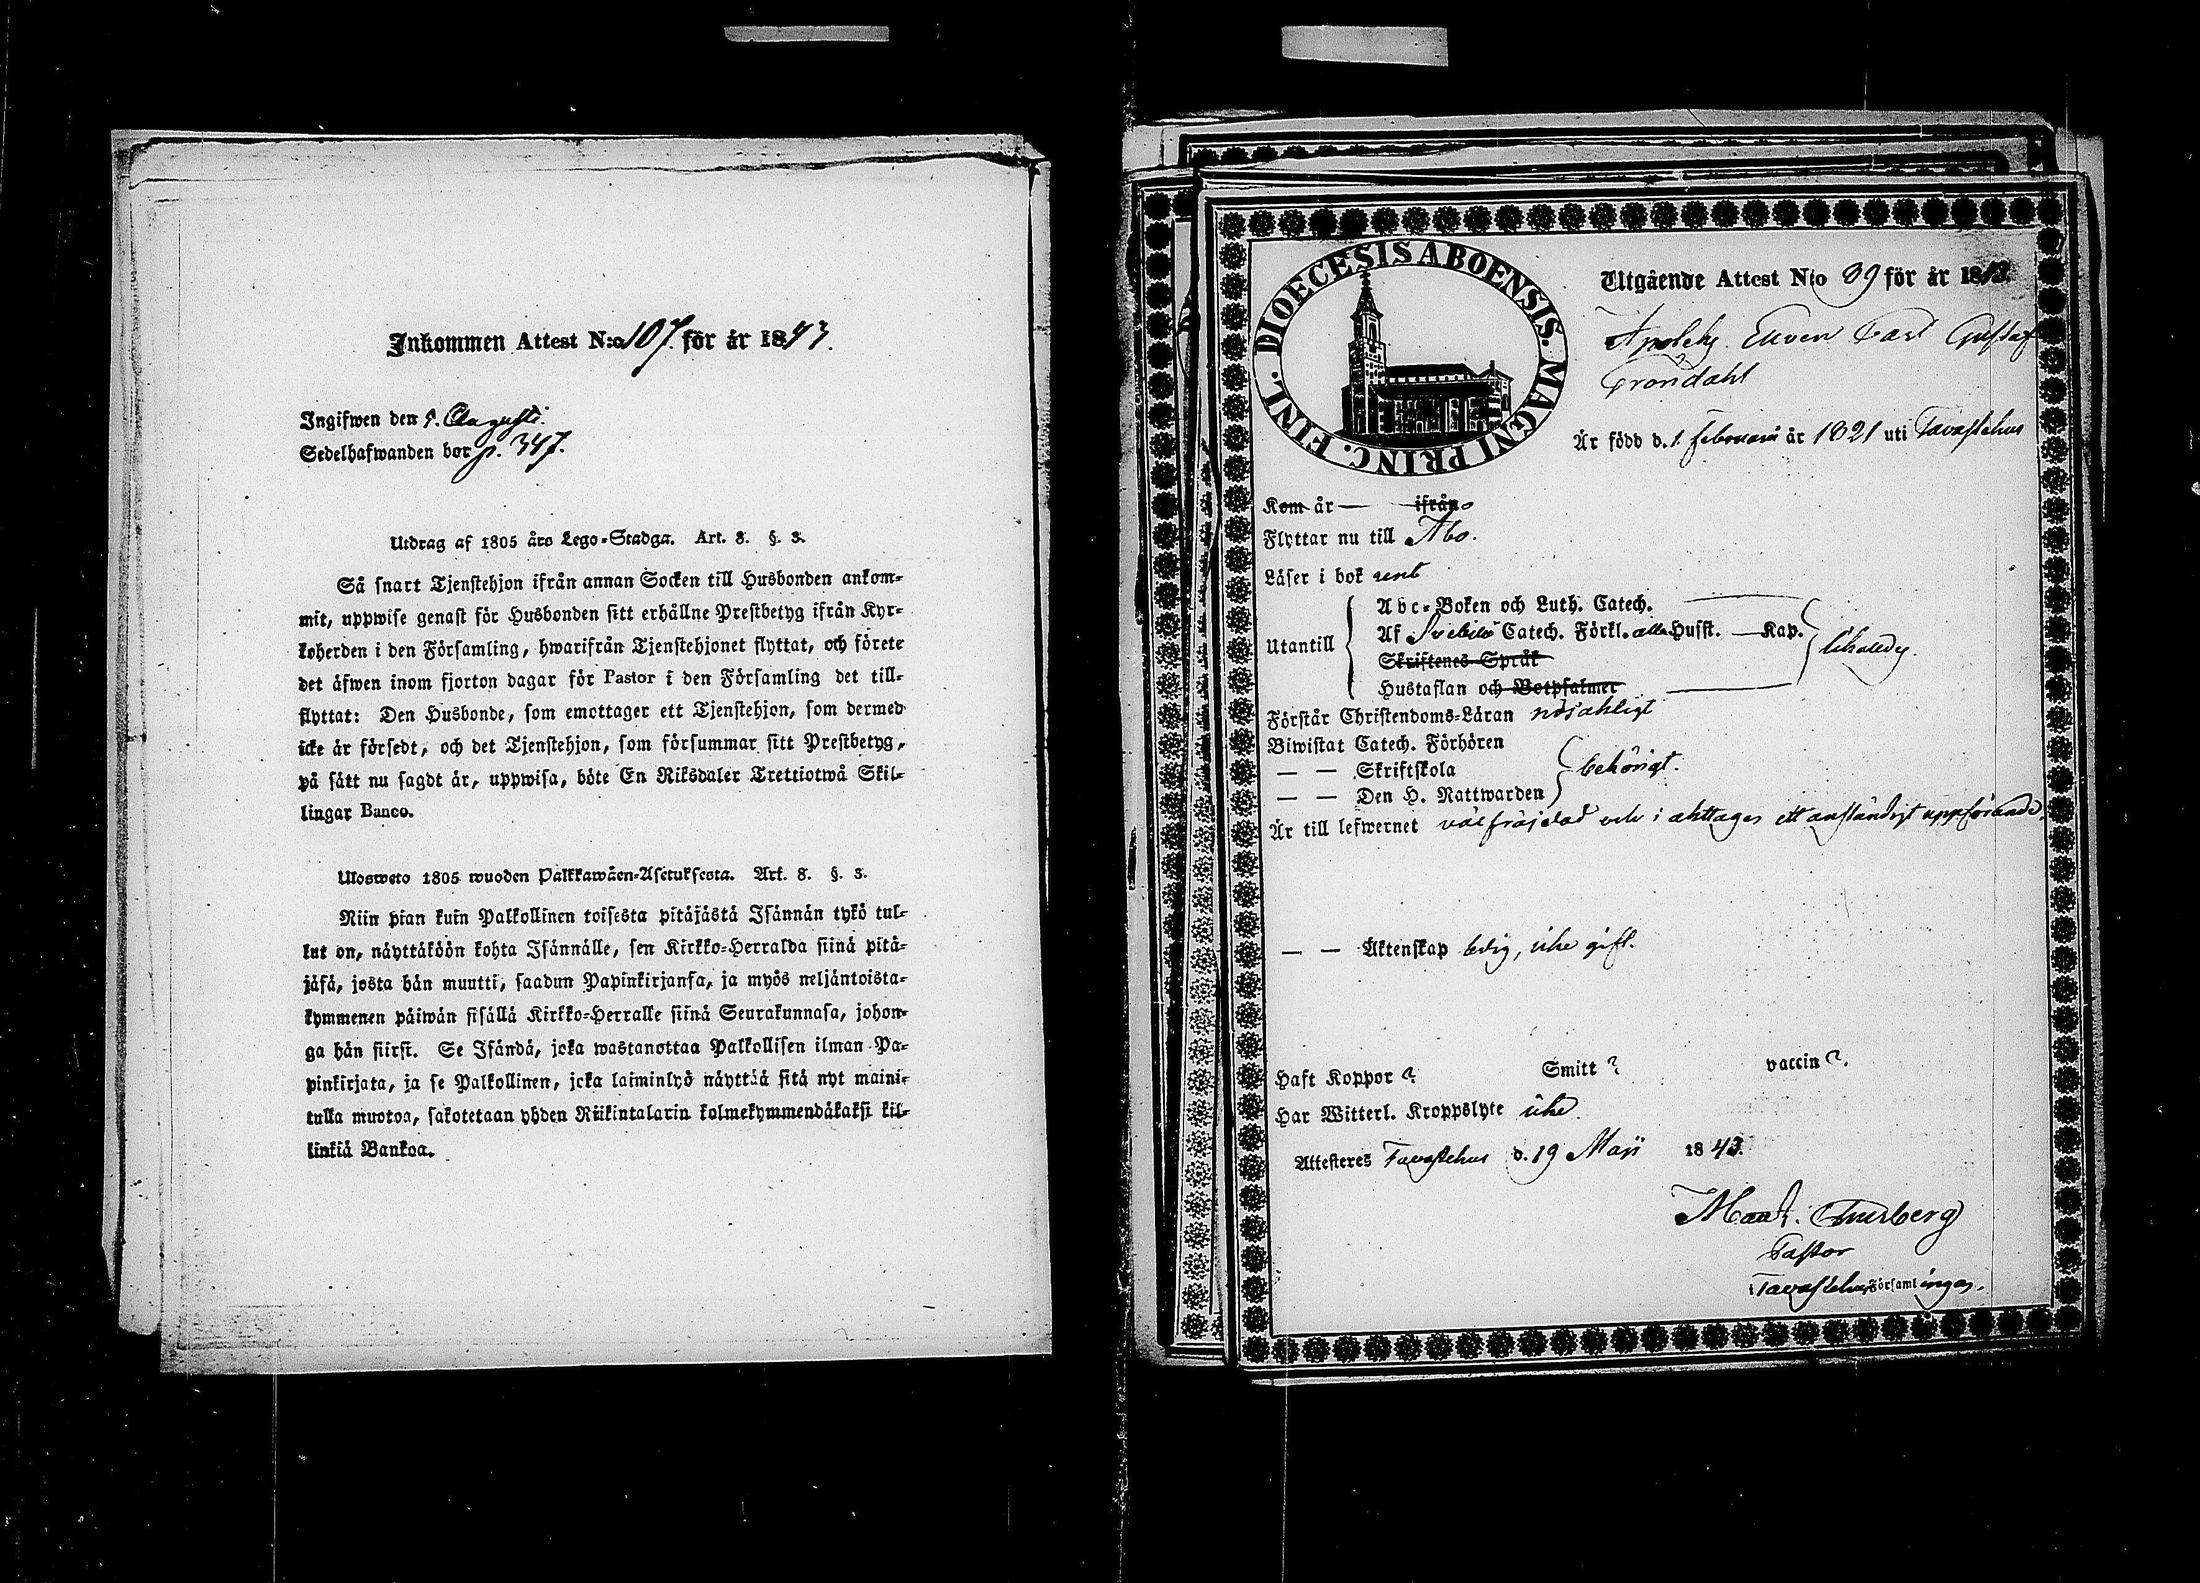 Inkommen Attest N:o 107. för år 1843.
Ingifwen den 5. Augusti.
Sedelhafwanden bor p. 347.
Utdrag af 1805 års Lego-Stadga. Art. 8. §. 3.
Så snart Tjenstehjon ifrån annan Socken till Husbonden ankom-
mit, uppwise genast för Husbonden sitt erhållne Prestbetyg ifrån Kyr-
koherden i den Församling, hwarifrån Tjenstehjonet flyttat, och förete
det äfwen inom fjorton dagar för Pastor i den Församling det till-
flyttat: Den Husbonde, som emottager ett Tjenstehjon, som dermed
icke är försedt, och det Tjenstehjon, som försummar sitt Prestbetyg,
på sätt nu sagdt är, uppwisa, böte En Riksdaler Trettiotwå Skil-
lingar Banco.
Ulosweto 1805 wuoden Palkkawäen-Asetuksesta. Art. 8. §. 3.
Niin pian kuin Palkollinen toisesta pitäjästä Isännän tykö tul-
lut on, näyttäköön kohta Isännälle, sen Kirkko-Herralda siinä pitä-
jäsä, josta hän muutti, saadun Papinkirjansa, ja myös neljäntoista-
kymmenen päiwän sisällä Kirkko-Herralle siinä Seurakunnasa, johon-
ga hän siirsi. Se Isändä, joka wastanottaa Palkollisen ilman Pa-
pinkirjata, ja se Palkollinen, joka laiminlyö näyttää sitä nyt maini-
tulla muotoa, sakotetaan yhden Riikintalarin kolmekymmendäkaksi kil-
linkiä Bankoa.
DIOECESIS ABOENSIS. MAGNI PRINC. FINL.
Utgående Attest N:o 39 för år 1843.
Apoteks Eleven Carl Gustaf
Grondahl
Är född d. 1. Februarii år 1821 uti Tavastehus
Kom år — ifrån
Flyttar nu till Åbo.
Läser i bok rent
Utantill
Abc-Boken och Luth. Catech.
Af Svebilii Catech. Förkl. alla Husst. — Kap.
Skriftenes Språk
Hustaflan och Botpsalmer
Förstår Christendoms-Läran nöjaktligt
Biwistat Catech. Förhören
— — Skriftskola
behörigt.
— — Den H. Nattwarden
Är till lefwernet välfräjdad och i akttager ett anständigt uppförande.
— — Äktenskap ledig, icke gift.
Haft Koppor ? Smitt ? vaccin ?.
Har Witterl. Kroppslyte icke
Attesteres Tavastehus d. 19 Maji 1843.
Thurberg
Pastor
i Tavastehus Församlingar.